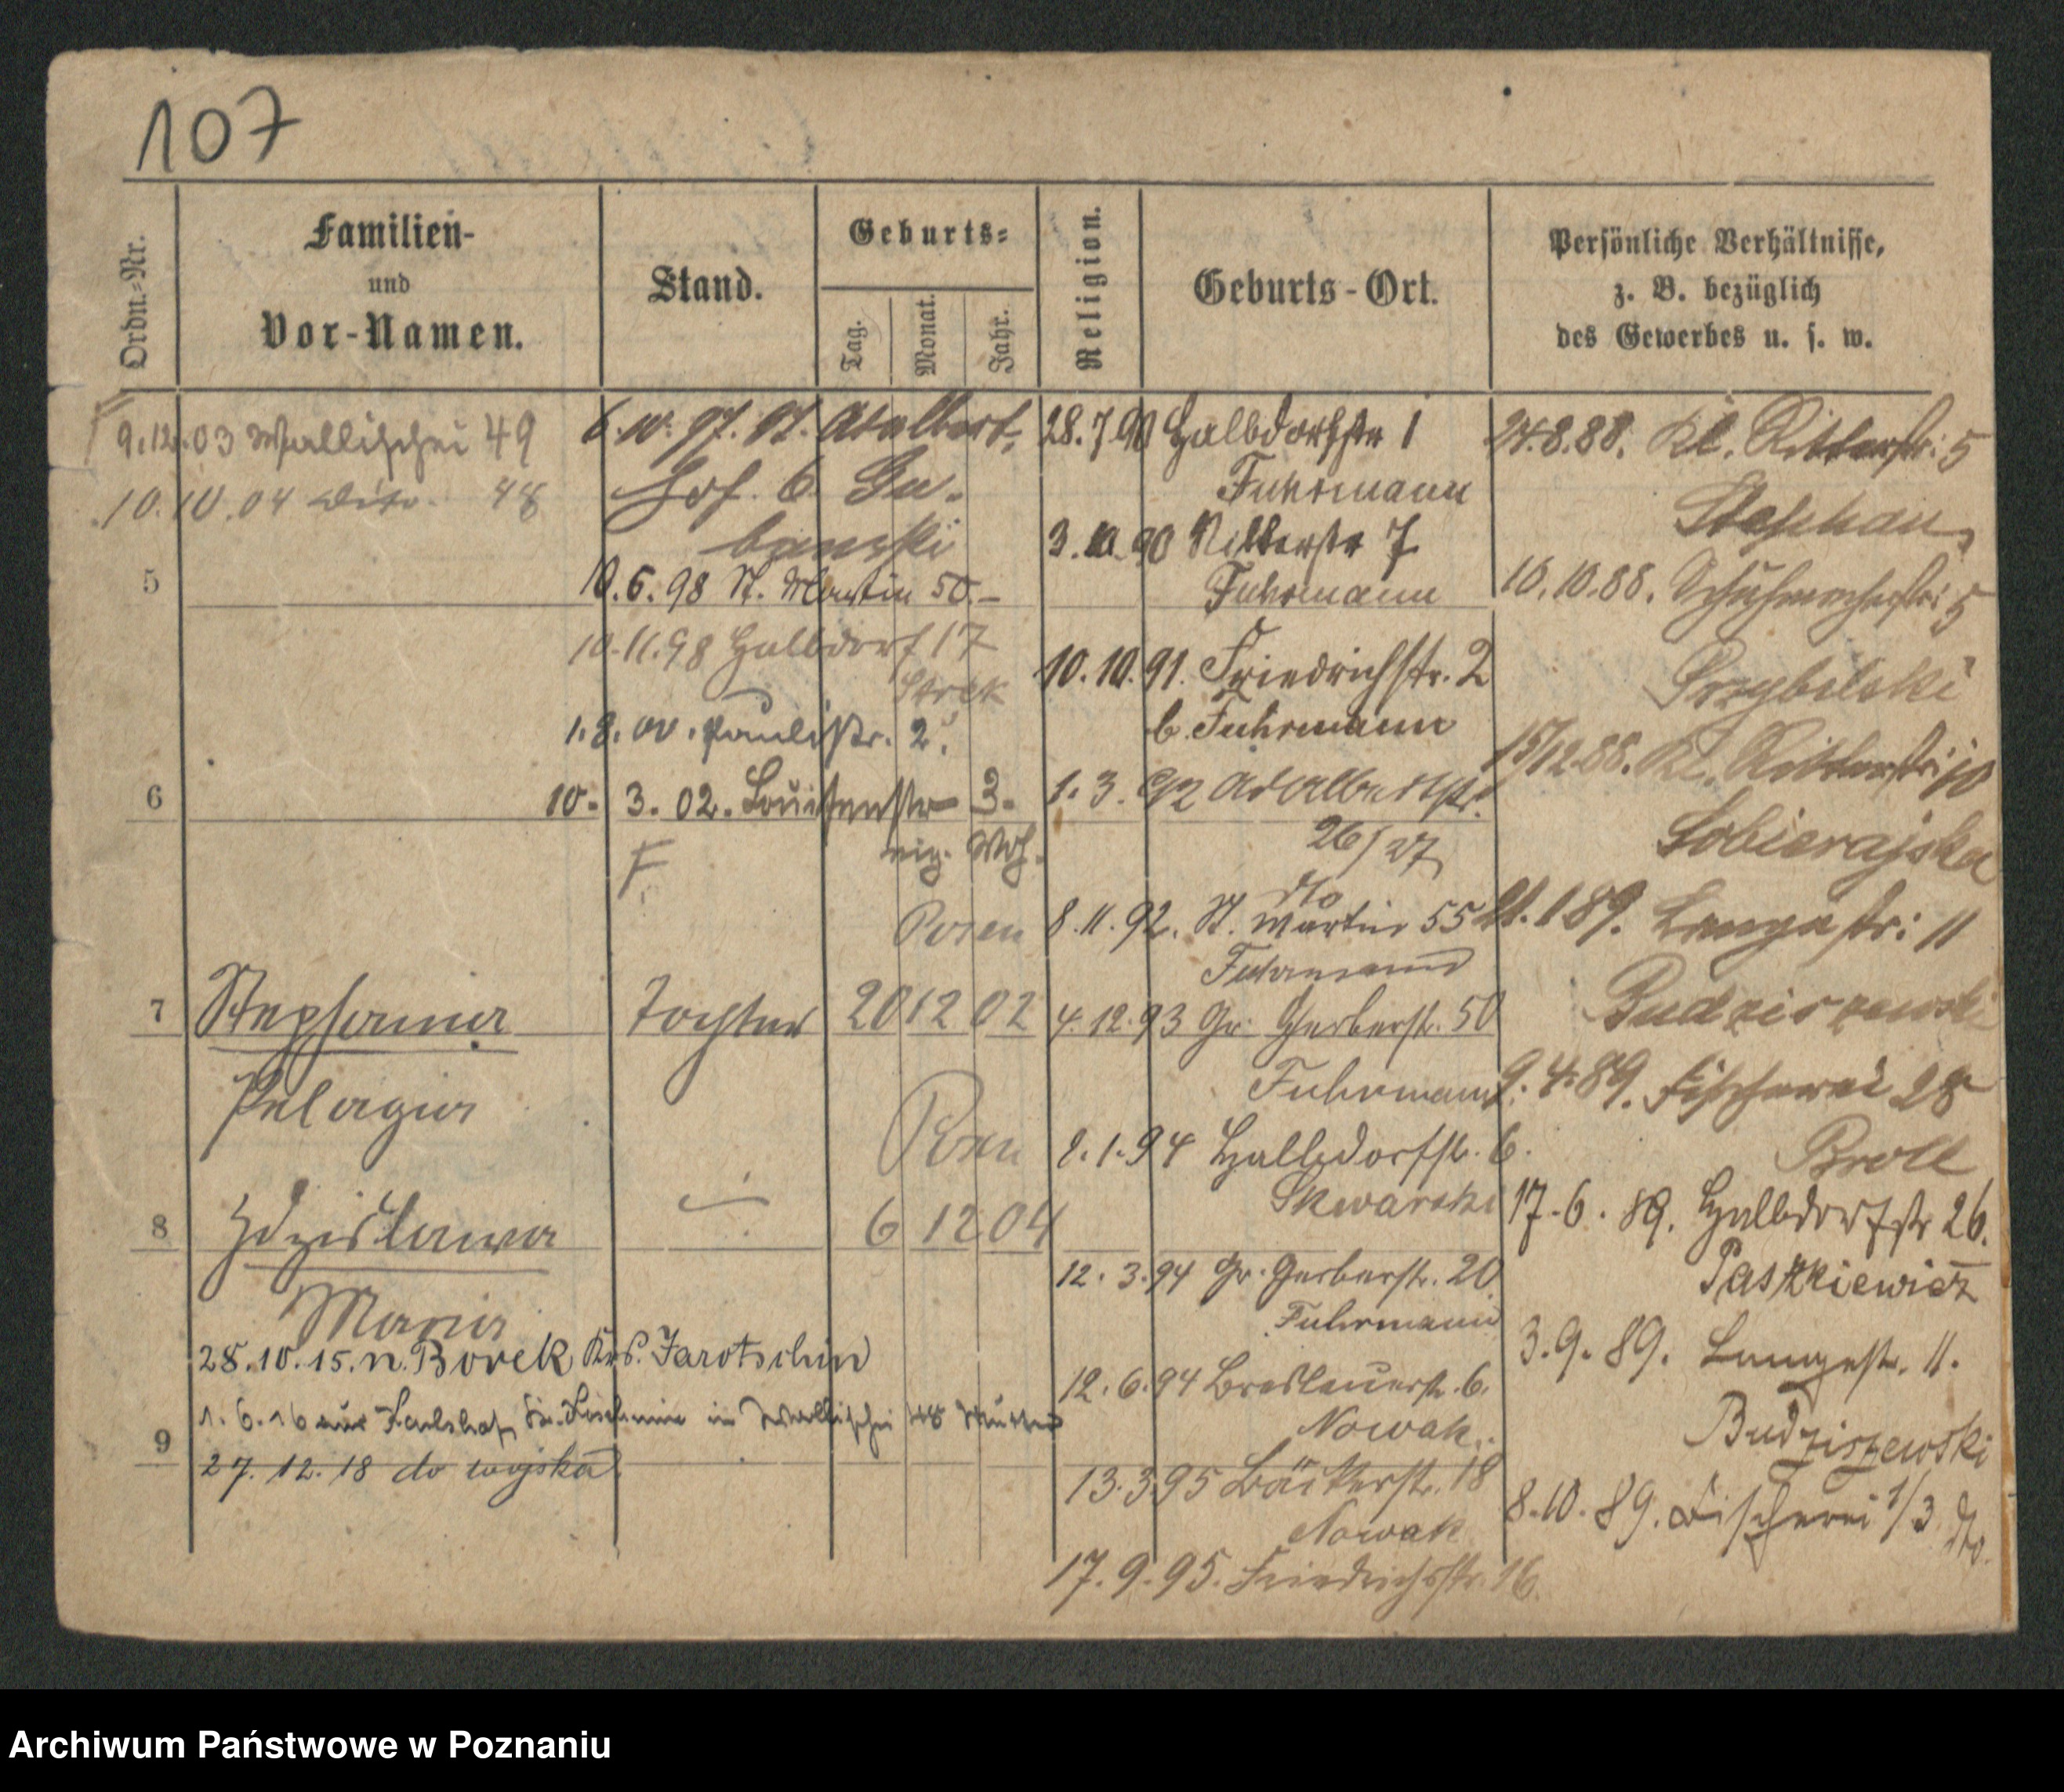 107
Ordn.-Nr.
Familien-
und
Vor-Namen.
Stand.
Geburts-
Tag.
Monat.
Jahr.
Religion.
Geburts-Ort.
Persönliche Verhältnisse,
z. B. bezüglich
des Gewerbes u. s. w.
9.12.03 Wallischei 49
10.10.04 dito. 48
5
6
6.10.97. St. Adalbert
Hof. 6.
10.6.98 St. Martin 50.–
10.11.98 Halbdorf 17
1.8.00. Paulistr. 2.
10. 3. 02. Louisenstr 3.
eig. Woh.
Posen
7 Stephania Tochter 20 12 02
Pelagia
Posen
8 Zdzislawa 6 12 04
Maria
28.10.15. n. Borek Krs. Jarotschin
1.6.16 aus Karlshof in Wallischei
9
27.12.18 do wojska
28.7.90 Halbdorfstr 1
Fuhrmann
3.10.90 Ritterstr 7
Fuhrmann
10.10.91. Friedrichstr. 2
b. Fuhrmann
1.3.92 Adalbertstr.
26/27
dto
8.11.92. St. Martin 55
Fuhrmann
4.12.93 Gr. Gerberstr. 50
Fuhrmann
2.1.94 Halbdorfstr. 6.
Skwarski
12.3.94 Gr. Gerberstr. 20
Fuhrmann
12.6.94 Breslauerstr. 6.
Nowak.
13.3.95 Bäckerstr. 18
Nowak
17.9.95. Friedrichsstr. 16.
24.8.88. Kl. Ritterstr: 5
Stephan
10.10.88. Schuhmacherstr: 5
Przybilski
15/12.88. Kl. Ritterstr: 10
Sobierajska
21.1.89. Langestr: 11
Budziszewski
9.4.89. Fischerei 28
Broll
17.6.89. Halbdorfstr 26.
Paszkiewicz
3.9.89. Langestr. 11.
Budziszewski
8.10.89. Fischerei 1/3 dto.
Archiwum Państwowe w Poznaniu